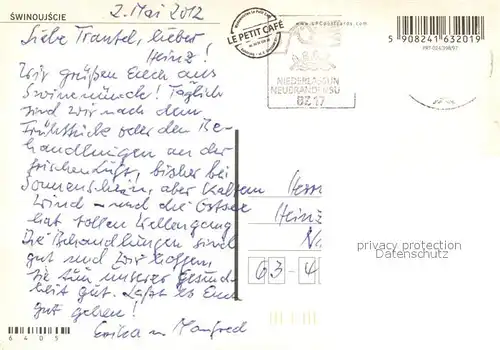 ŚWINOUJŚCIE
2. Mai 2012
LE PETIT CAFÉ
www.UPCpostcards.com
5 908241 632019
Liebe Trautel, lieber
Heinz!
Wir grüßen Euch aus
Swinemünde! Täglich
sind wir nach dem
Frühstück oder den Be-
handlungen an der
frischen Luft, bisher bei
Sonnenschein, aber kaltem
Wind – und die Ostsee
hat tollen Wellengang
Die Behandlungen sind
gut und wir hoffen
sie tun unserer Gesund-
heit gut. Laßt es Euch
gut gehen!
Erika u Manfred
NIEDERLASSUN
NEUBRANDENBG
BZ 17
Herr
Heinz
63-4
privacy protection
Datenschutz
6405